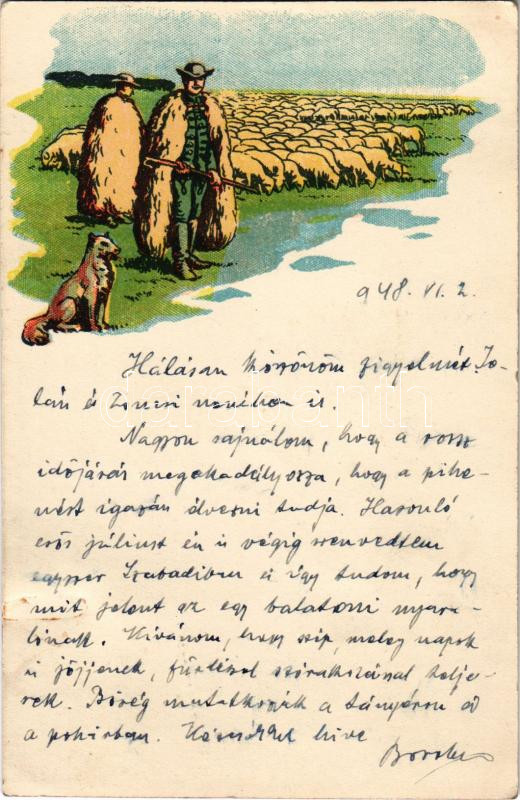 948. VI. 2.
Hálásan köszönöm figyelmét Jo-
lán és Zsuzsi nevében is.
Nagyon sajnálom, hogy a rossz
időjárás megakadályozza, hogy a pihe-
nést igazán élvezni tudja. Hasonló
esős júliust én is végig szenvedtem
egyszer Szabadiban és így tudom, hogy
mit jelent az egy balatoni nyara-
lónak. Kívánom, hogy szép, meleg napok
is jöjjenek, fürdéssel szórakozással telje-
sek. Bőség mutatkozzék a tányéron és
a pohárban. Kézcsókkal híve
darabanth